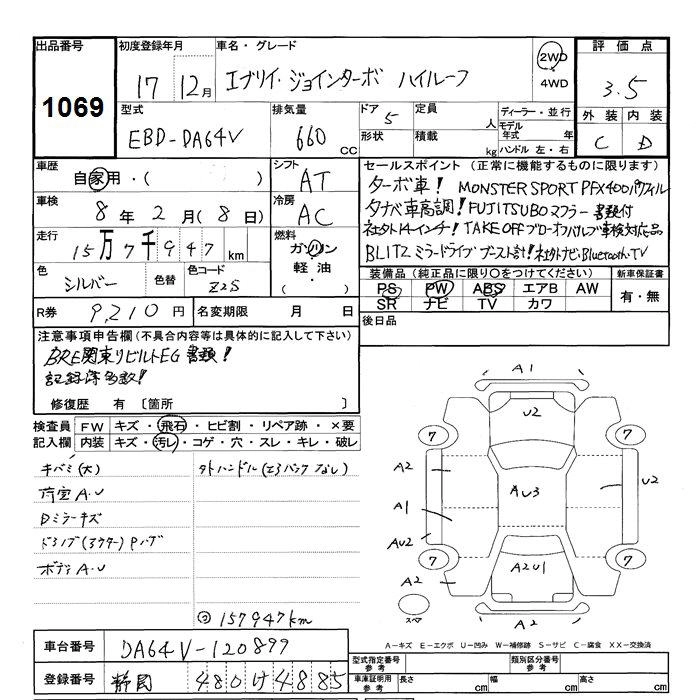 出品番号 初度登録年月 車名・グレード 評価点
1069
17 12月 エブリイ・ジョインターボ ハイルーフ 2WD 4WD 3.5
型式 排気量 ドア 定員 ディーラー・並行 外装 内装
EBD-DA64V 660 CC 5 人 モデル年式 年 C D
形状 積載 kg ハンドル 左・右
車歴 シフト セールスポイント(正常に機能するものに限ります)
自家用・( ) AT ターボ車! MONSTER SPORT PFX400
車検 冷房 タナベ車高調! FUJITSUBOマフラー 書類付
8年2月(8日) AC 社外14インチ! TAKE OFF ブローオフバルブ車検対応品
走行 燃料 BLITZ ミラードライブ ブースト計! 社外ナビ・Bluetooth・TV
15万7千947km ガソリン 軽油・( )
色 色替 色コード 装備品(純正品に限り○をつけてください) 新車保証書
シルバー Z2S PS PW ABS エアB AW 有・無
SR ナビ TV カワ
R券 9,210円 名変期限 月 日 後日品
注意事項申告欄(不具合内容等は具体的に記入して下さい)
BRE関東リビルトEG 書類!
記録簿多数!
修復歴 有 〔箇所 〕
検査員 FW キズ・飛石・ヒビ割・リペア跡・×要
記入欄 内装 キズ・汚レ・コゲ・穴・スレ・キレ・破レ
キバミ(大) タトハンドル(エアバック なし)
荷室A.U
Dミラーキズ
ボディA.U
157947km
A1
U2
7 7
A2 U2
AU3
A1
AU2
7 7
A2 A2U1
スペア A2
A-キズ E-エクボ U-凹み W-補修跡 S-サビ C-腐食 XX-交換済
車台番号 DA64V-120899
型式指定番号 参考 類別区分番号 参考
登録番号 静岡 480 け 4885
車庫証明用 参考 長さ cm 幅 cm 高さ cm